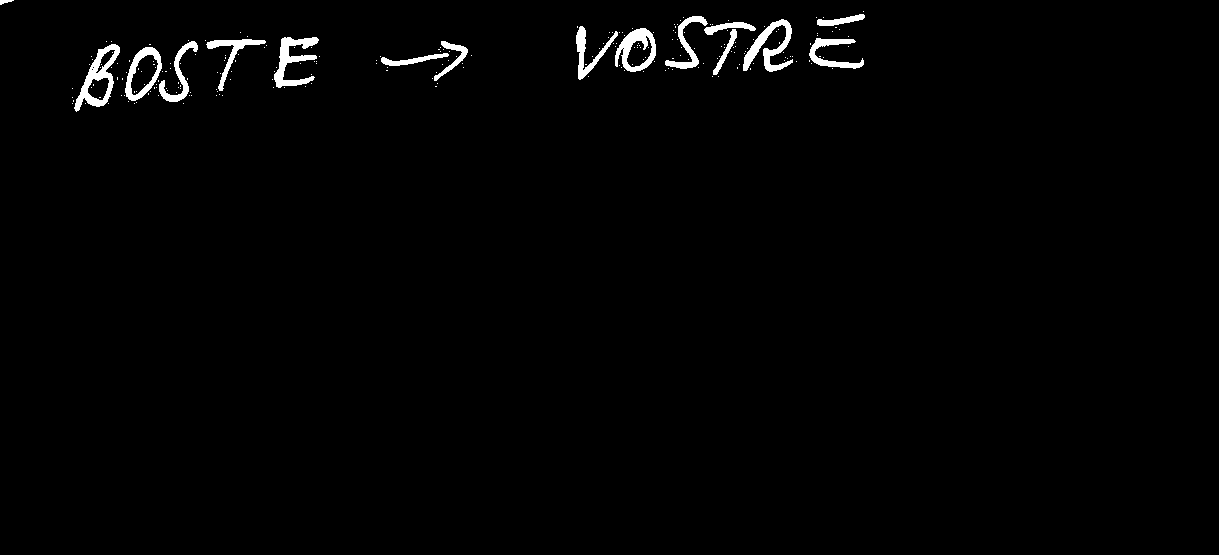 BOSTE → VOSTRE